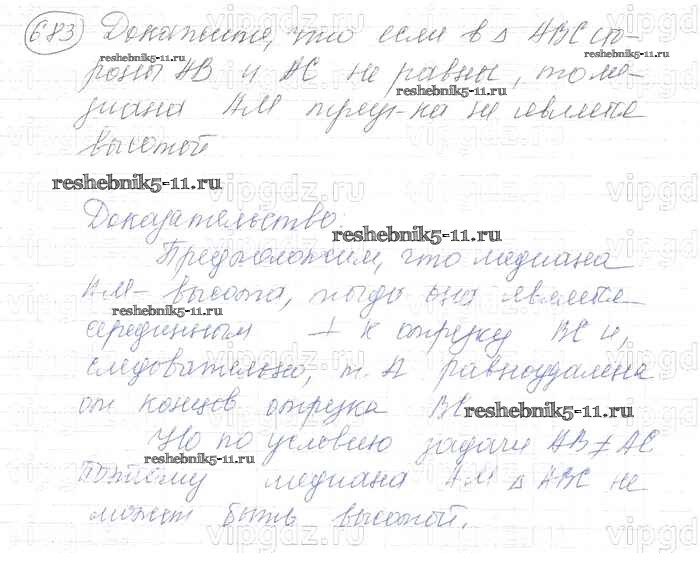 683 Докажите, что если в △ ABC сто-
роны AB и AC не равны, то ме-
диана AM треуг-ка не является
высотой
Доказательство:
Предположим, что медиана
AM - высота, тогда она является
серединным ⊥ к отрезку BC и,
следовательно, т. A равноудалена
от концов отрезка BC
Но по условию задачи AB ≠ AC
Поэтому медиана AM △ ABC не
может быть высотой.
reshebnik5-11.ru
reshebnik5-11.ru
reshebnik5-11.ru
reshebnik5-11.ru
reshebnik5-11.ru
reshebnik5-11.ru
reshebnik5-11.ru
vipgdz.ru